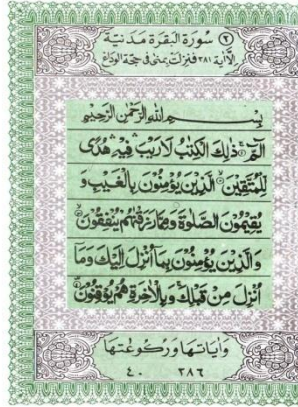 (٢) سورة البقرة مدنية
إلا آية ٢٨١ فنزلت بمنى في حجة الوداع
بِسْمِ اللهِ الرَّحْمٰنِ الرَّحِيْمِ
الٓمّٓ ۚ ذٰلِكَ الْكِتٰبُ لَا رَيْبَ ۛ فِيْهِ ۛ هُدًى
لِّلْمُتَّقِيْنَ ۙ الَّذِيْنَ يُؤْمِنُوْنَ بِالْغَيْبِ وَ
يُقِيْمُوْنَ الصَّلٰوةَ وَمِمَّا رَزَقْنٰهُمْ يُنْفِقُوْنَ ۙ
وَالَّذِيْنَ يُؤْمِنُوْنَ بِمَآ اُنْزِلَ اِلَيْكَ وَمَآ
اُنْزِلَ مِنْ قَبْلِكَ ۚ وَبِالْاٰخِرَةِ هُمْ يُوْقِنُوْنَ
وآياتها وركوعتها
٢٨٦ ٤٠